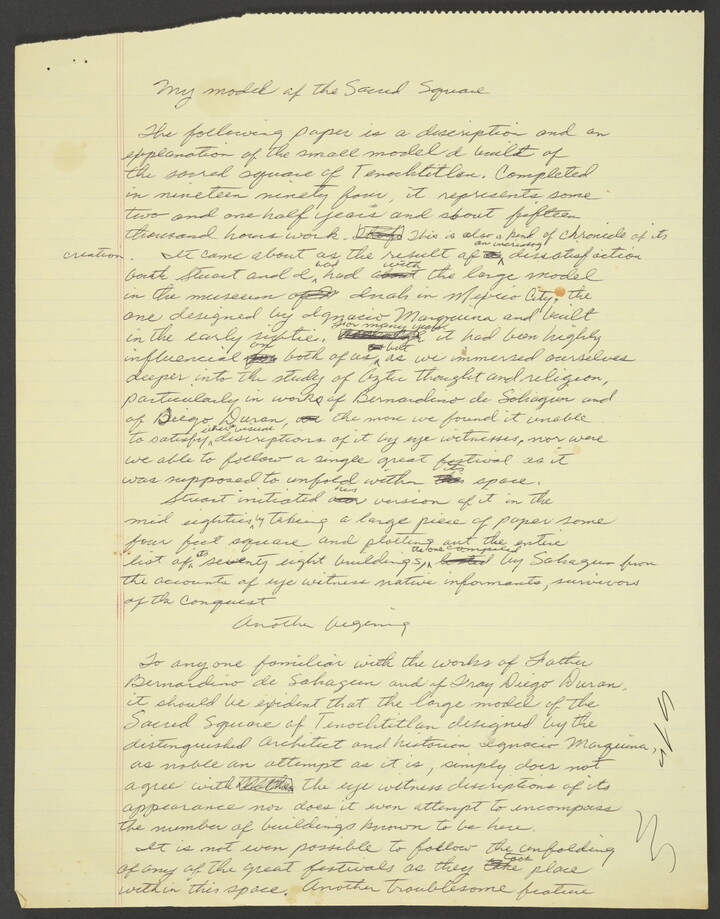 My model of the Sacred Square
The following paper is a discription and an
explanation of the small model I built of
the sacred square of Tenochtitlan. Completed
in nineteen ninety four, it represents some
two and one half years and about fifteen
thousand hours work. This is also a kind of chronicle of its
creation. It came about as the result of an increasing dissatisfaction
both Stuart and I had had with the large model
in the museum of Inah in Mexico City, the
one designed by Ignacio Marquina and built
in the early sixties. For many years it had been highly
influencial on both of us, but as we immersed ourselves
deeper into the study of Aztec thought and religion,
particularly in works of Bernardino de Sahagun and
of Diego Duran, the more we found it unable
to satisfy discriptions of it by eye witnesses, nor were
we able to follow a single great festival as it
was supposed to unfold within its space.
Stuart initiated his version of it in the
mid eighties by taking a large piece of paper some
four feet square and plotting out the entire
list of its seventy eight buildings, the one compiled by Sahagun from
the accounts of eye witness native informants, survivors
of the Conquest
Another begining
To anyone familiar with the works of Father
Bernardino de Sahagun and of Fray Diego Duran,
it should be evident that the large model of the
Sacred Square of Tenochtitlan designed by the
distinguished Architect and historian Ignacio Marquina,
as noble an attempt as it is, simply does not
agree with the eye witness discriptions of its
appearance nor does it even attempt to encompass
the number of buildings known to be here.
It is not even possible to follow the unfolding
of any of the great festivals as they took place
within this space. Another troublesome feature